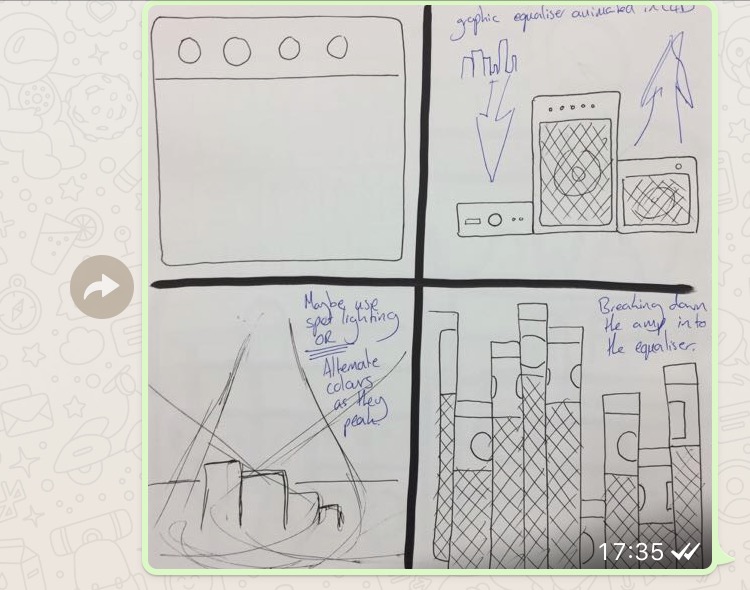 graphic equaliser animated in C4D
Maybe use
spot lighting
OR
Alternate
colours
as they
peak
Breaking down
the amp into
the equaliser.
17:35